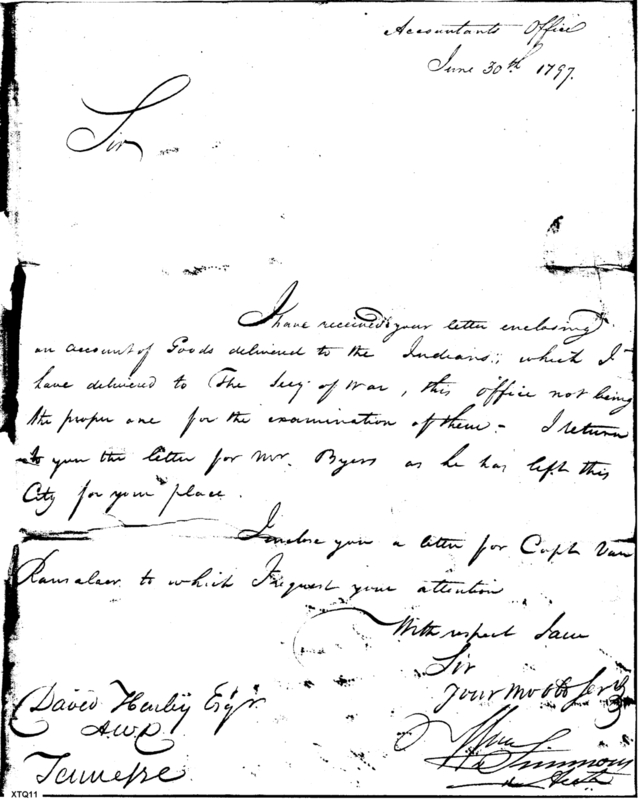 Accountants Office
June 30th 1797.
Sir
I have received your letter enclosing
an account of Goods delivered to the Indians, which I
have delivered to The Secy of War, this office not being
the proper one for the examination of them - I return
to you the letter for Mr. Byers as he has left this
City for your place.
I enclose you a letter for Capt Van
Ransalaer to which I request your attention
With respect I am
Sir
Your Mo Ob Serv
David Henley Esqr
AWD
Tennessee
Wm Simmons
Acct
XTQ11